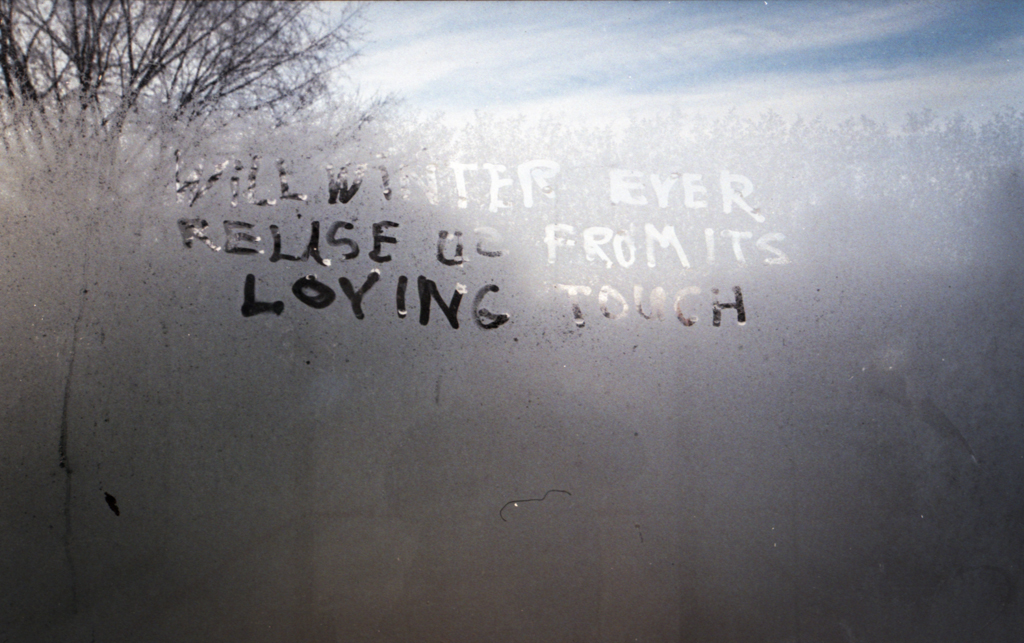 WILL WINTER EVER
RELUSE US FROM ITS
LOVING TOUCH